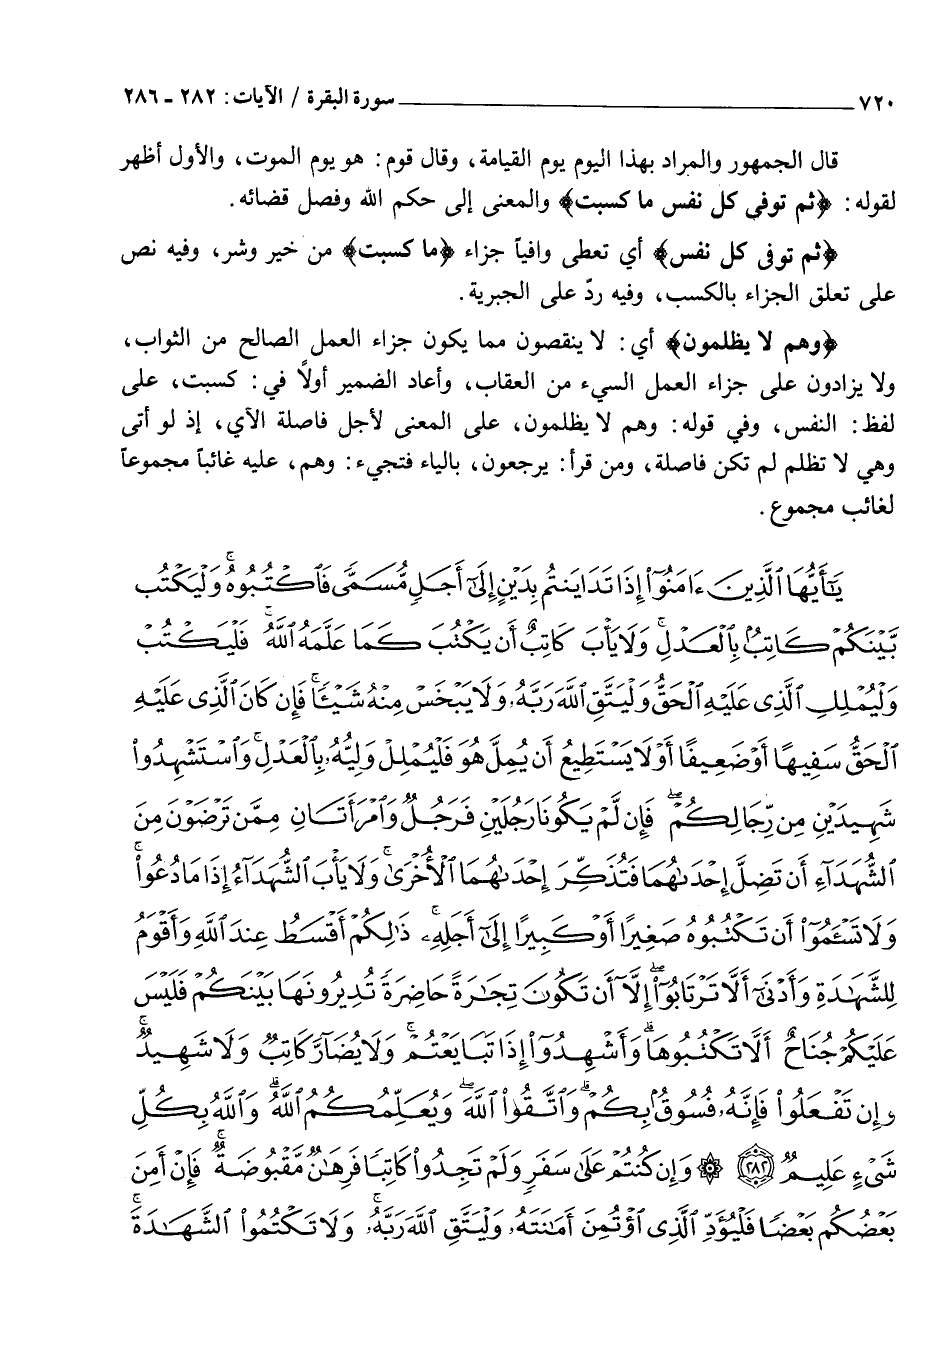 ٧٢٠ ـــــــــــــــــــــــــــــــــــــــ سورة البقرة / الآيات: ٢٨٢ - ٢٨٦
قال الجمهور والمراد بهذا اليوم يوم القيامة، وقال قوم: هو يوم الموت، والأول أظهر
لقوله: ﴿ثم توفى كل نفس ما كسبت﴾ والمعنى إلى حكم الله وفصل قضائه.
﴿ثم توفى كل نفس﴾ أي تعطى وافياً جزاء ﴿ما كسبت﴾ من خير وشر، وفيه نص
على تعلق الجزاء بالكسب، وفيه ردّ على الجبرية.
﴿وهم لا يظلمون﴾ أي: لا ينقصون مما يكون جزاء العمل الصالح من الثواب،
ولا يزادون على جزاء العمل السيء من العقاب، وأعاد الضمير أولاً في: كسبت، على
لفظ: النفس، وفي قوله: وهم لا يظلمون، على المعنى لأجل فاصلة الآي، إذ لو أتى
وهي لا تظلم لم تكن فاصلة، ومن قرأ: يرجعون، بالياء فتجيء: وهم، عليه غائباً مجموعاً
لغائب مجموع.
يَٰٓأَيُّهَا ٱلَّذِينَ ءَامَنُوٓا۟ إِذَا تَدَايَنتُم بِدَيْنٍ إِلَىٰٓ أَجَلٍ مُّسَمًّى فَٱكْتُبُوهُ ۚ وَلْيَكْتُب
بَّيْنَكُمْ كَاتِبٌۢ بِٱلْعَدْلِ ۚ وَلَا يَأْبَ كَاتِبٌ أَن يَكْتُبَ كَمَا عَلَّمَهُ ٱللَّهُ ۚ فَلْيَكْتُبْ
وَلْيُمْلِلِ ٱلَّذِى عَلَيْهِ ٱلْحَقُّ وَلْيَتَّقِ ٱللَّهَ رَبَّهُۥ وَلَا يَبْخَسْ مِنْهُ شَيْـًٔا ۚ فَإِن كَانَ ٱلَّذِى عَلَيْهِ
ٱلْحَقُّ سَفِيهًا أَوْ ضَعِيفًا أَوْ لَا يَسْتَطِيعُ أَن يُمِلَّ هُوَ فَلْيُمْلِلْ وَلِيُّهُۥ بِٱلْعَدْلِ ۚ وَٱسْتَشْهِدُوا۟
شَهِيدَيْنِ مِن رِّجَالِكُمْ ۖ فَإِن لَّمْ يَكُونَا رَجُلَيْنِ فَرَجُلٌ وَٱمْرَأَتَانِ مِمَّن تَرْضَوْنَ مِنَ
ٱلشُّهَدَآءِ أَن تَضِلَّ إِحْدَىٰهُمَا فَتُذَكِّرَ إِحْدَىٰهُمَا ٱلْأُخْرَىٰ ۚ وَلَا يَأْبَ ٱلشُّهَدَآءُ إِذَا مَا دُعُوا۟ ۚ
وَلَا تَسْـَٔمُوٓا۟ أَن تَكْتُبُوهُ صَغِيرًا أَوْ كَبِيرًا إِلَىٰٓ أَجَلِهِۦ ۚ ذَٰلِكُمْ أَقْسَطُ عِندَ ٱللَّهِ وَأَقْوَمُ
لِلشَّهَٰدَةِ وَأَدْنَىٰٓ أَلَّا تَرْتَابُوٓا۟ ۖ إِلَّآ أَن تَكُونَ تِجَٰرَةً حَاضِرَةً تُدِيرُونَهَا بَيْنَكُمْ فَلَيْسَ
عَلَيْكُمْ جُنَاحٌ أَلَّا تَكْتُبُوهَا ۗ وَأَشْهِدُوٓا۟ إِذَا تَبَايَعْتُمْ ۚ وَلَا يُضَآرَّ كَاتِبٌ وَلَا شَهِيدٌ ۚ
وَإِن تَفْعَلُوا۟ فَإِنَّهُۥ فُسُوقٌۢ بِكُمْ ۗ وَٱتَّقُوا۟ ٱللَّهَ ۖ وَيُعَلِّمُكُمُ ٱللَّهُ ۗ وَٱللَّهُ بِكُلِّ
شَىْءٍ عَلِيمٌ ﴿٢٨٢﴾ ۞ وَإِن كُنتُمْ عَلَىٰ سَفَرٍ وَلَمْ تَجِدُوا۟ كَاتِبًا فَرِهَٰنٌ مَّقْبُوضَةٌ ۖ فَإِنْ أَمِنَ
بَعْضُكُم بَعْضًا فَلْيُؤَدِّ ٱلَّذِى ٱؤْتُمِنَ أَمَٰنَتَهُۥ وَلْيَتَّقِ ٱللَّهَ رَبَّهُۥ ۗ وَلَا تَكْتُمُوا۟ ٱلشَّهَٰدَةَ ۚ